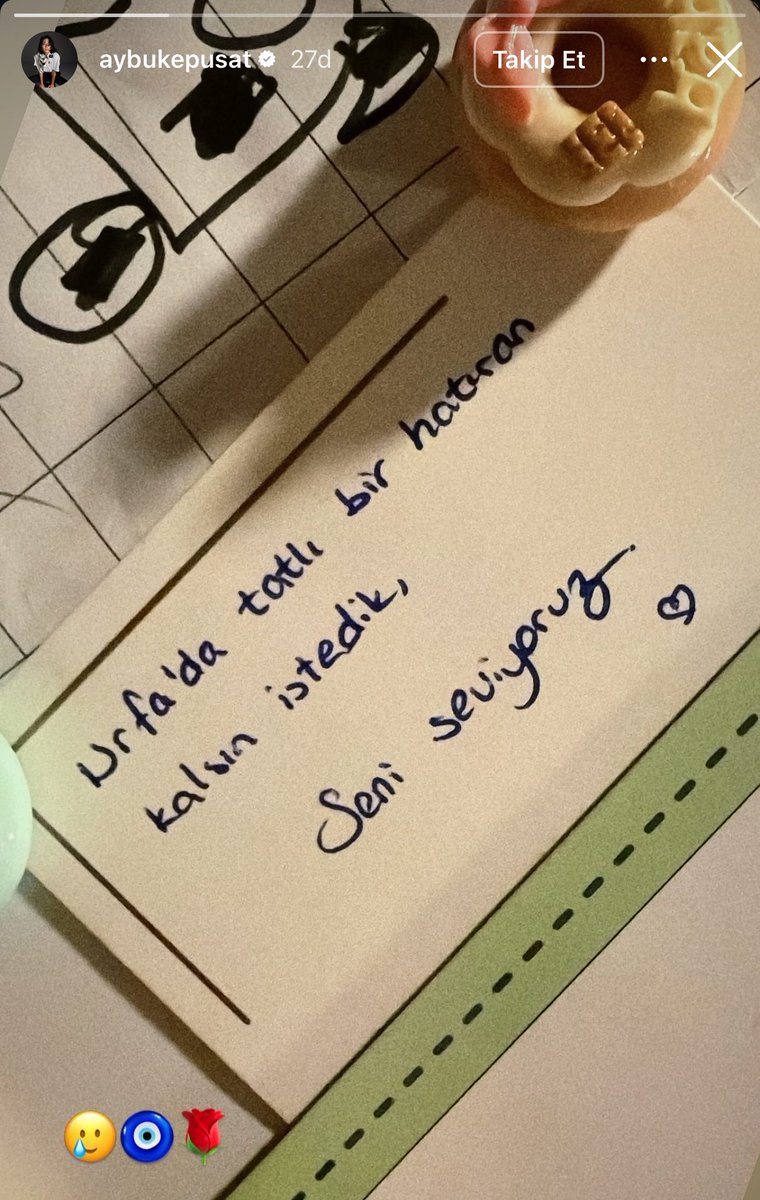 aybukepusat 27d Takip Et
Urfa'da tatlı bir hatıran
kalsın istedik,
Seni seviyoruz.